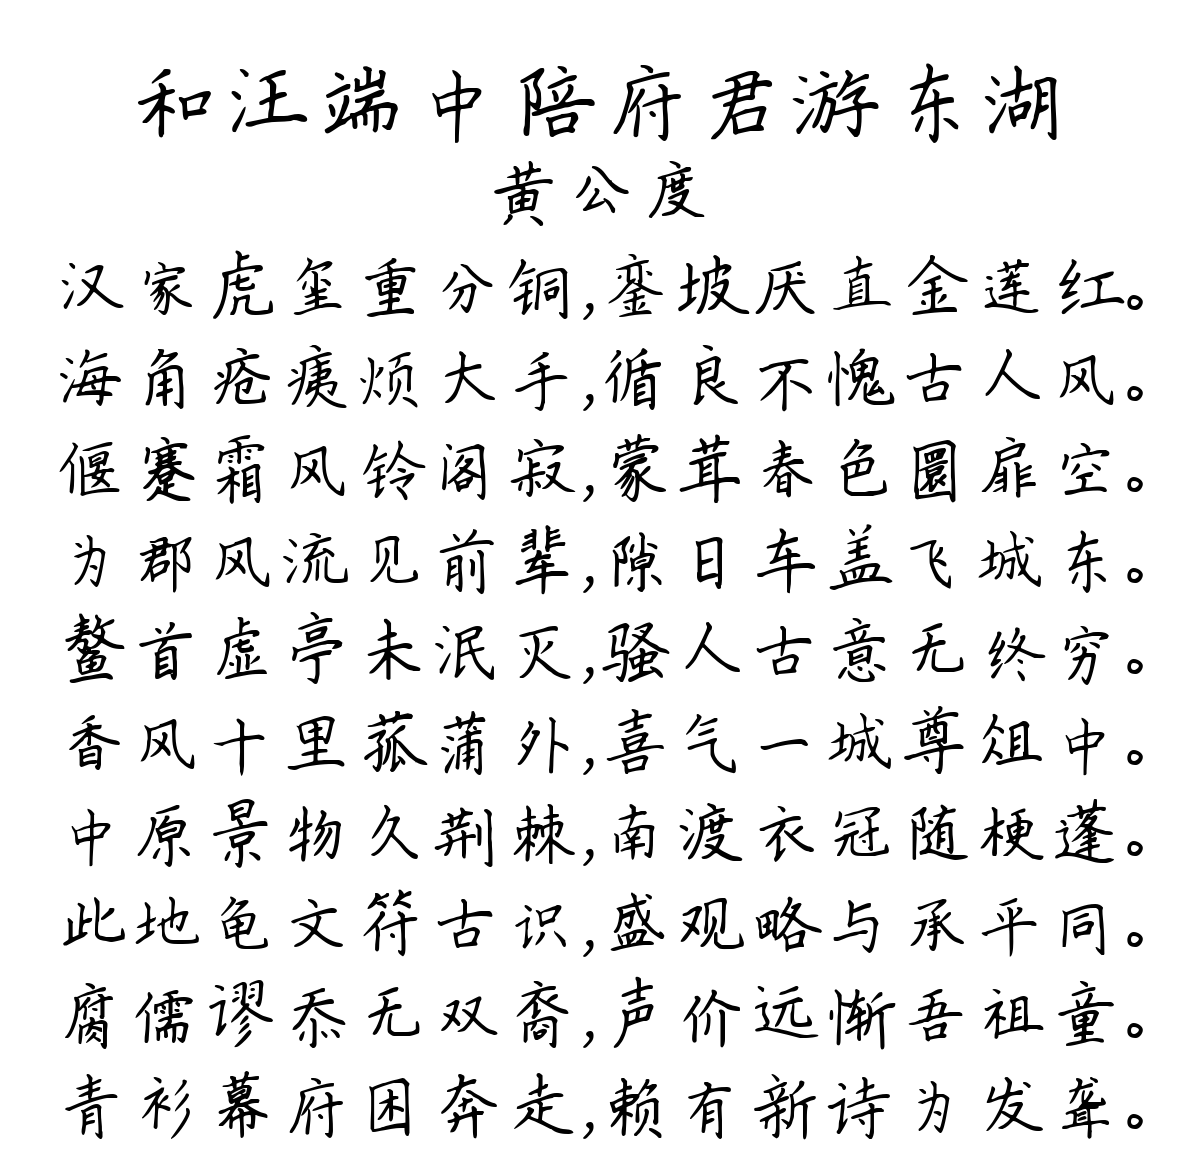 和汪端中陪府君游东湖
黄公度
汉家虎玺重分铜,銮坡厌直金莲红。
海角疮痍烦大手,循良不愧古人风。
偃蹇霜风铃阁寂,蒙茸春色圜扉空。
为郡风流见前辈,隙日车盖飞城东。
鳌首虚亭未泯灭,骚人古意无终穷。
香风十里菰蒲外,喜气一城尊俎中。
中原景物久荆棘,南渡衣冠随梗蓬。
此地龟文符古识,盛观略与承平同。
腐儒谬忝无双裔,声价远惭吾祖童。
青衫幕府困奔走,赖有新诗为发聋。